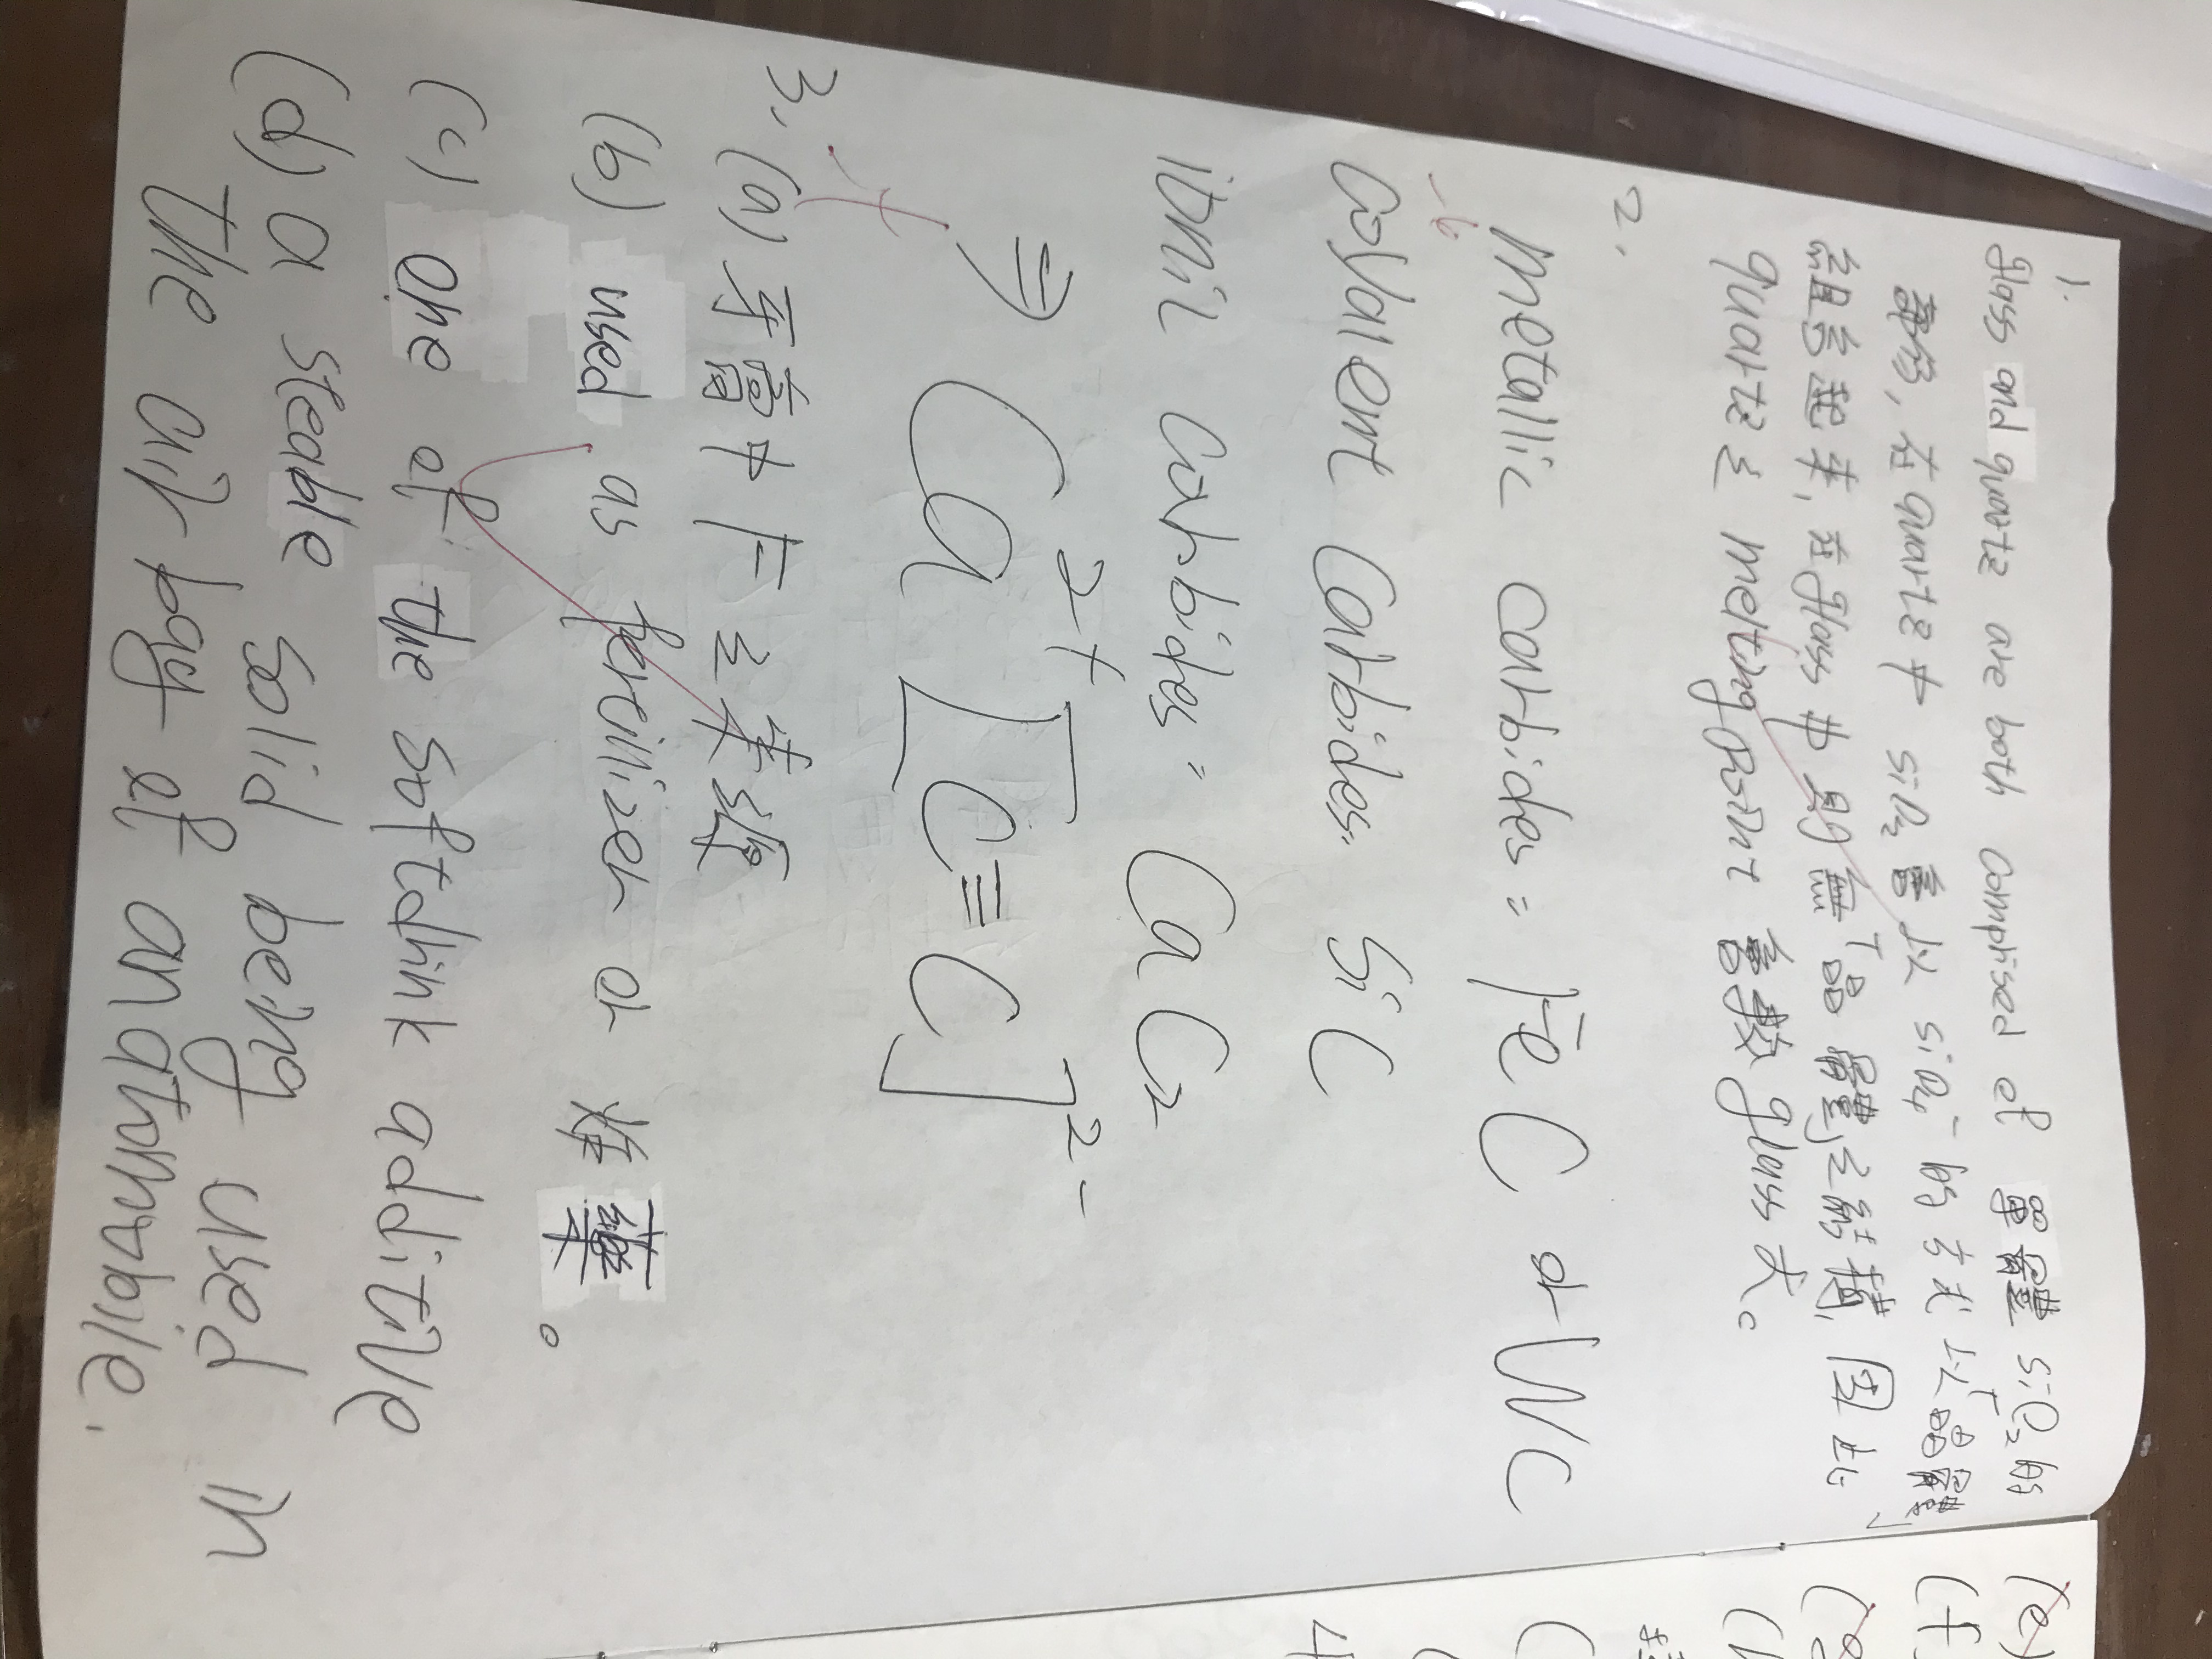 1.
glass and quartz are both comprised of 單體 SiO2 的
部份, 在quartz中 SiO2 會以 SiO4⁻ 的方式以「晶體」
組合起來, 在glass中則無「晶體」之結構, 因此
quartz之melting point 會較glass大。
2.
-6
metallic carbides = FeC or WC
covalent Carbides = SiC
ionic carbides = CaC2
⇒ Ca²⁺ [C≡C]²⁻
3. (a) 牙齒中F之來源
(b) used as fertilizer or 炸藥。
(c) one of the softdink additive
(d) a steable solid being used in
the air bag of an atomobile.
(e)
(f)
(g)
(h)
4